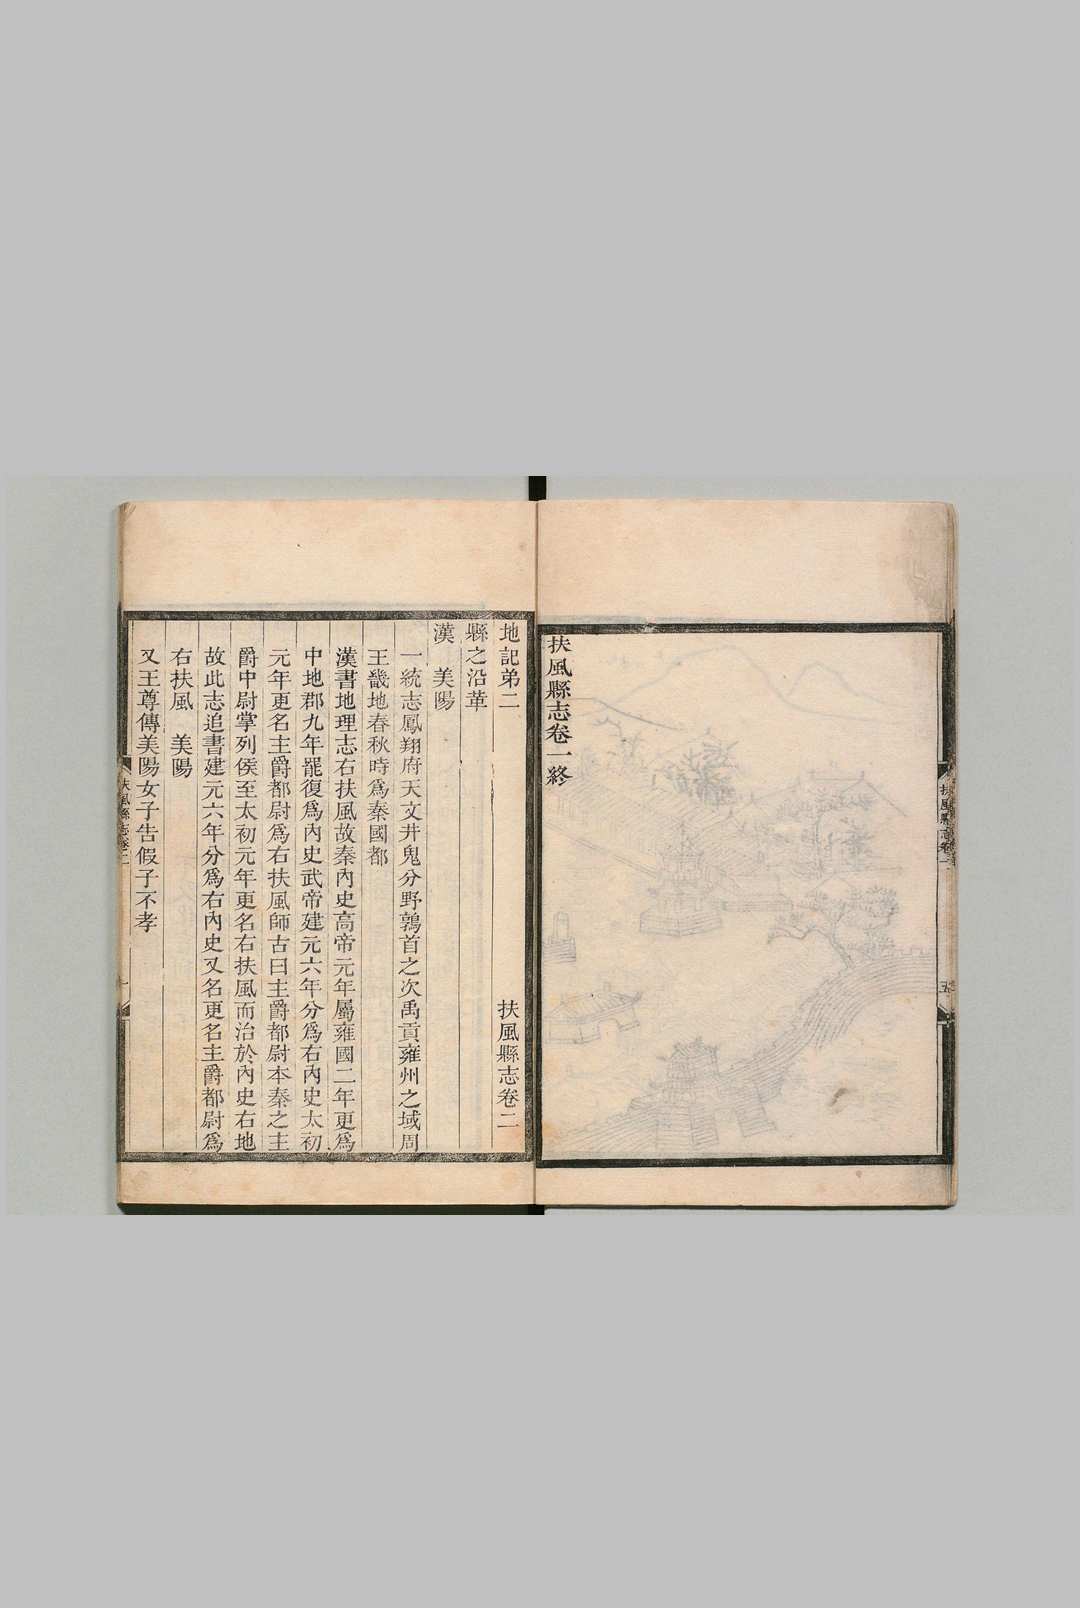 扶風縣志卷一終
扶風縣志卷一
五
地記弟二
扶風縣志卷二
縣之沿革
漢　美陽
一統志鳳翔府天文井鬼分野鶉首之次禹貢雍州之域周
王畿地春秋時爲秦國都
漢書地理志右扶風故秦內史高帝元年屬雍國二年更爲
中地郡九年罷復爲內史武帝建元六年分爲右內史太初
元年更名主爵都尉爲右扶風師古曰主爵都尉本秦之主
爵中尉掌列侯至太初元年更名右扶風而治於內史右地
故此志追書建元六年分爲右內史又名更名主爵都尉爲
右扶風　美陽
又王尊傳美陽女子告假子不孝
扶風縣志卷二
一